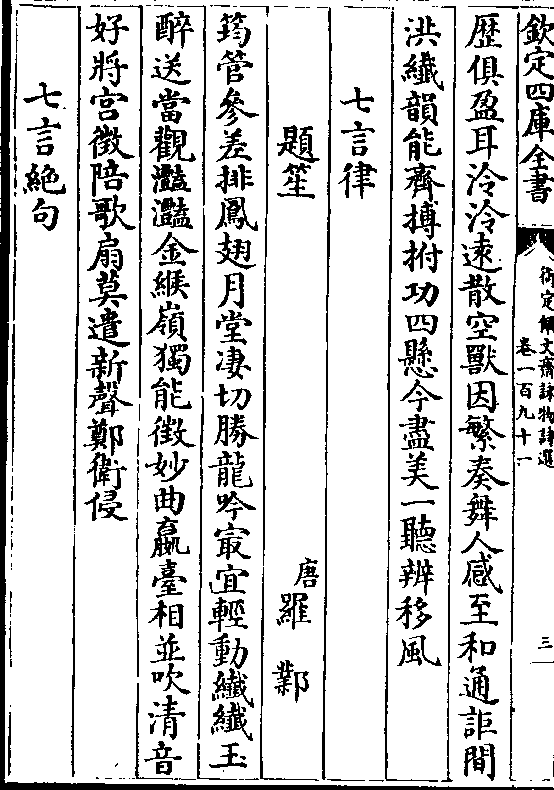 欽定四庫全書
御定佩文齋詠物詩選
卷一百九十一
三
歴俱盈耳泠泠逺散空獸因繁奏舞人感至和通詎間
洪纎韻能齊搏拊功四懸今盡美一聽辨移風
七言律
題笙
唐羅鄴
筠管參差排鳳翅月堂凄切勝龍吟㝡宜輕動纎纎玉
醉送當觀灩灩金緱嶺獨能徴妙曲嬴臺相並吹清音
好將宮徴陪歌扇莫遣新聲鄭衛侵
七言絶句